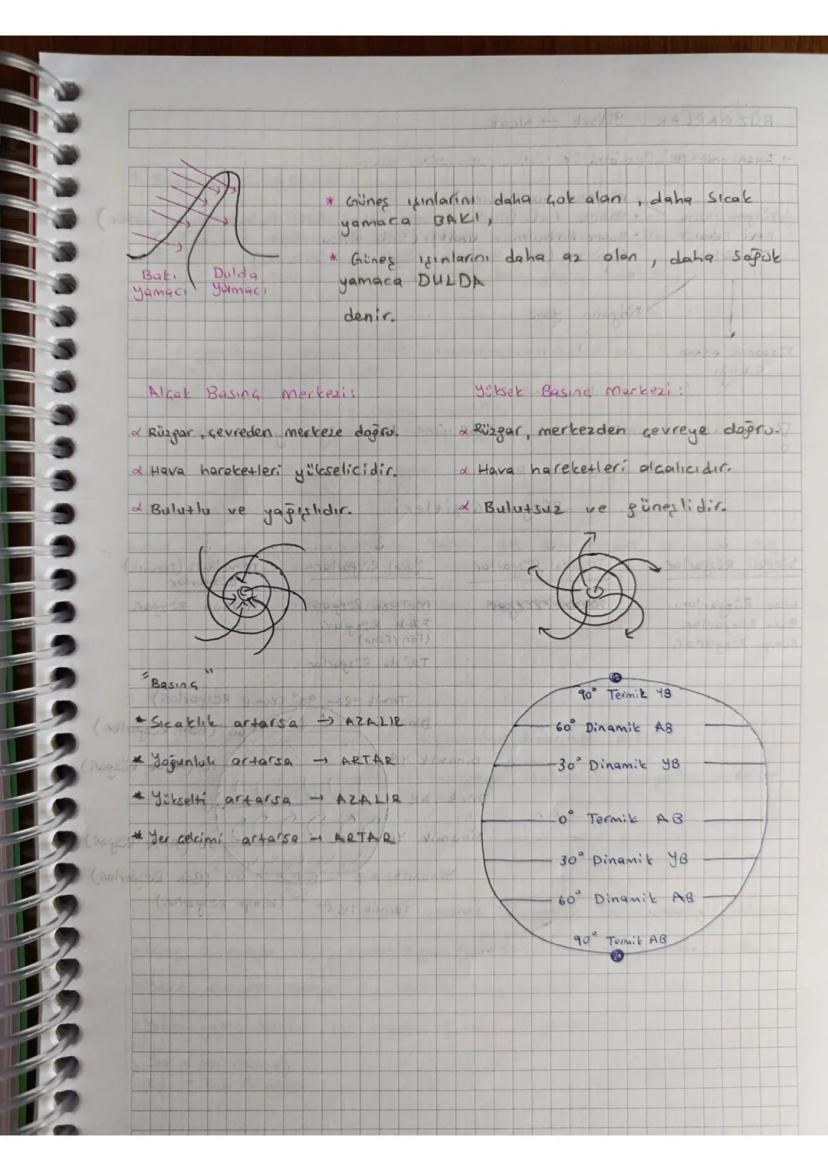 * Güneş ışınlarını daha çok alan, daha sıcak
yamaca BAKI,
* Güneş ışınlarını daha az alan, daha soğuk
yamaca DULDA
denir.
Bakı yamacı
Dulda yamacı
Alçak Basınç merkezi:
α Rüzgar, çevreden merkeze doğru.
α Hava hareketleri yükselicidir.
α Bulutlu ve yağışlıdır.
Yüksek Basınç Merkezi:
α Rüzgar, merkezden çevreye doğru.
α Hava hareketleri alçalıcıdır.
α Bulutsuz ve güneşlidir.
"Basınç"
* Sıcaklık artarsa → AZALIR
* Yoğunluk artarsa → ARTAR
* Yükselti artarsa → AZALIR
* Yer çekimi artarsa → ARTAR
90° Termik YB
60° Dinamik AB
30° Dinamik YB
0° Termik AB
30° Dinamik YB
60° Dinamik AB
90° Termik AB